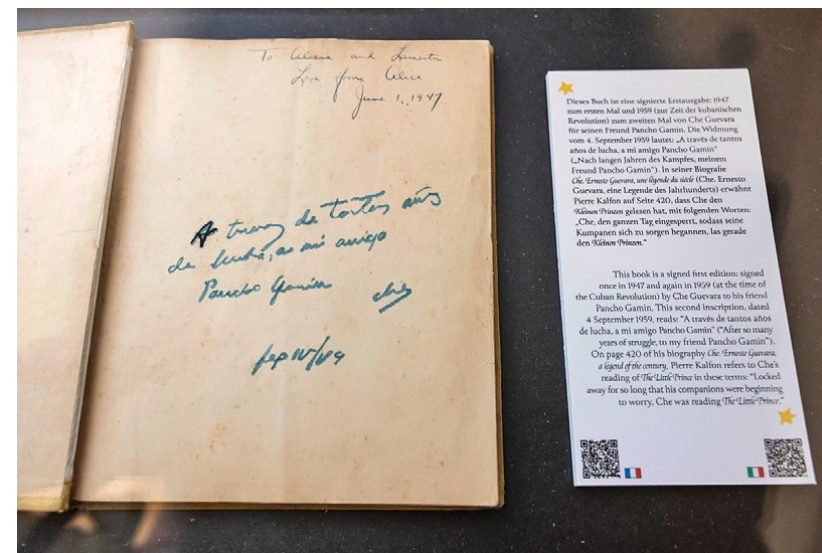 To and
Love from Alice
June 1, 1947
A traves de tantos años
de lucha, a mi amigo
Pancho Gamin
che
sep IV/
Dieses Buch ist eine signierte Erstausgabe: 1947
zum ersten Mal und 1959 (zur Zeit der kubanischen
Revolution) zum zweiten Mal von Che Guevara
für seinen Freund Pancho Gamin. Die Widmung
vom 4. September 1959 lautet: „A través de tantos
años de lucha, a mi amigo Pancho Gamin“
(„Nach langen Jahren des Kampfes, meinem
Freund Pancho Gamin“). In seiner Biografie
Che. Ernesto Guevara, une légende du siècle (Che. Ernesto
Guevara, eine Legende des Jahrhunderts) erwähnt
Pierre Kalfon auf Seite 420, dass Che den
Kleinen Prinzen gelesen hat, mit folgenden Worten:
„Che, den ganzen Tag eingesperrt, sodass seine
Kumpanen sich zu sorgen begannen, las gerade
den Kleinen Prinzen.“
This book is a signed first edition: signed
once in 1947 and again in 1959 (at the time of
the Cuban Revolution) by Che Guevara to his friend
Pancho Gamin. This second inscription, dated
4 September 1959, reads: “A través de tantos años
de lucha, a mi amigo Pancho Gamin” (“After so many
years of struggle, to my friend Pancho Gamin”).
On page 420 of his biography Che. Ernesto Guevara,
a legend of the century, Pierre Kalfon refers to Che's
reading of The Little Prince in these terms: “Locked
away for so long that his companions were beginning
to worry, Che was reading The Little Prince.”